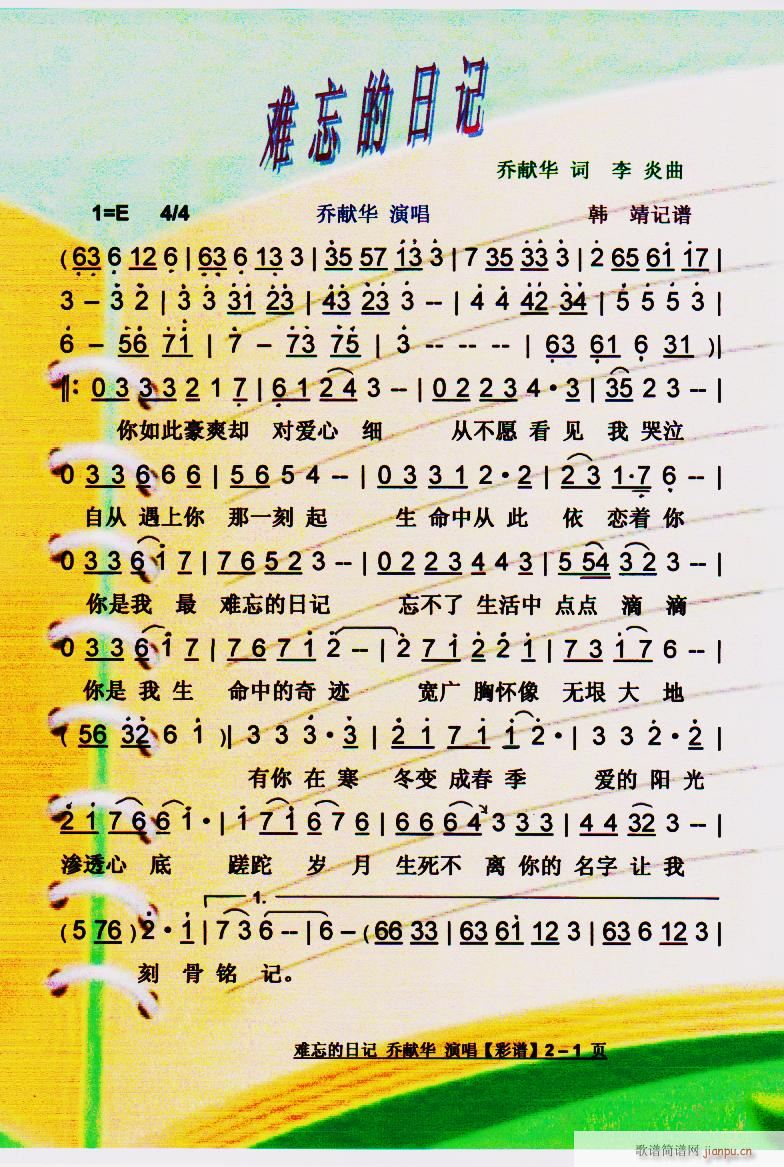 难忘的日记
乔献华 词 李 炎曲
1=E 4/4 乔献华 演唱 韩 靖记谱
( 63 6 12 6 | 63 6 13 3 | 35 57 13 3 | 7 35 33 3 | 2 65 61 17 |
3 – 3 2 | 3 3 31 23 | 43 23 3 -- | 4 4 42 34 | 5 5 5 3 |
6 – 56 71 | 7 – 73 75 | 3 -- -- -- | 63 61 6 31 )|
‖: 0 3 3 3 2 1 7 | 6 1 2 4 3 -- | 0 2 2 3 4 · 3 | 35 2 3 -- |
你如此豪爽却 对爱心 细 从不愿 看 见 我 哭泣
0 3 3 6 6 6 | 5 6 5 4 -- | 0 3 3 1 2 · 2 | 2 3 1 · 7 6 -- |
自从 遇上你 那一刻 起 生 命中从 此 依 恋着 你
0 3 3 6 1 7 | 7 6 5 2 3 -- | 0 2 2 3 4 4 3 | 5 54 3 2 3 -- |
你是我 最 难忘的日记 忘不了 生活中 点点 滴 滴
0 3 3 6 1 7 | 7 6 7 1 2 -- | 2 7 1 2 2 1 | 7 3 1 7 6 -- |
你是 我 生 命中的奇 迹 宽广 胸怀像 无垠 大 地
( 56 32 6 1 )| 3 3 3 · 3 | 2 1 7 1 1 2 · | 3 3 2 · 2 |
有你 在 寒 冬变 成春 季 爱的 阳 光
2 1 7 6 6 1 · | 1 7 1 6 7 6 | 6 6 6 4 3 3 3 | 4 4 32 3 -- |
渗透心 底 蹉跎 岁 月 生死不 离 你的 名字 让 我
1.
( 5 76 ) 2 · 1 | 7 3 6 -- | 6 – ( 66 33 | 63 61 12 3 | 63 6 12 3 |
刻 骨 铭 记。
难忘的日记 乔献华 演唱【彩谱】2 – 1 页
歌谱简谱网 jianpu.cn